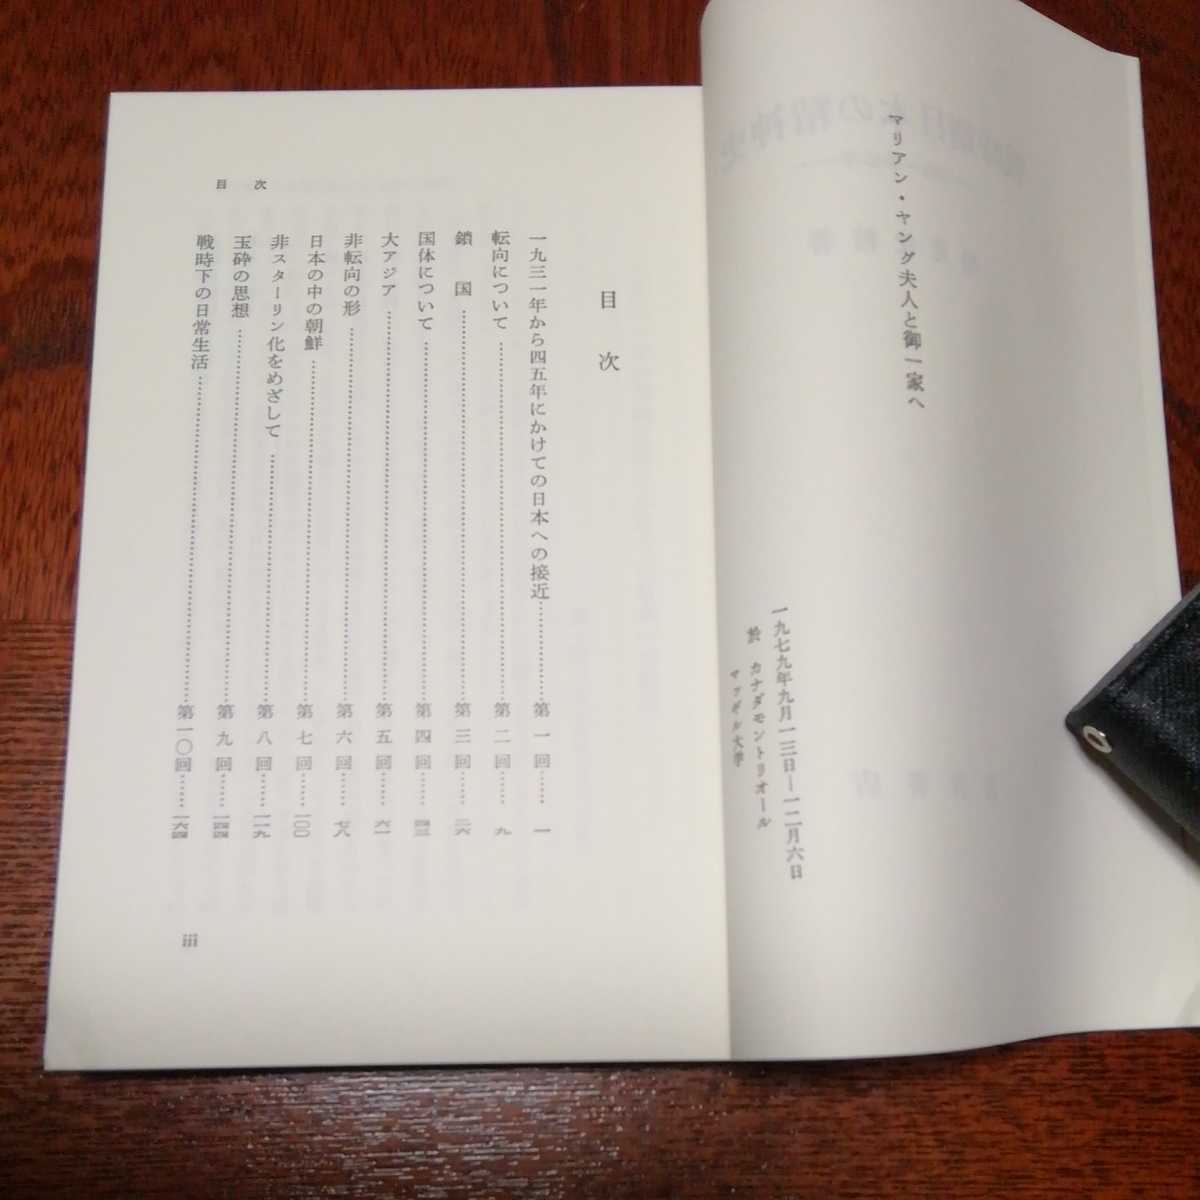 マリアン・ヤング夫人と御一家へ
一九七九年九月一三日―一二月六日
於 カナダモントリオール
マッギル大学
目次
一九三一年から四五年にかけての日本への接近…………第一回……一
転向について…………第二回……九
鎖国…………第三回……二六
国体について…………第四回……四三
大アジア…………第五回……六一
非転向の形…………第六回……七八
日本の中の朝鮮…………第七回……一〇〇
非スターリン化をめざして…………第八回……一一九
玉砕の思想…………第九回……一四四
戦時下の日常生活…………第一〇回……一六四
目次
iii